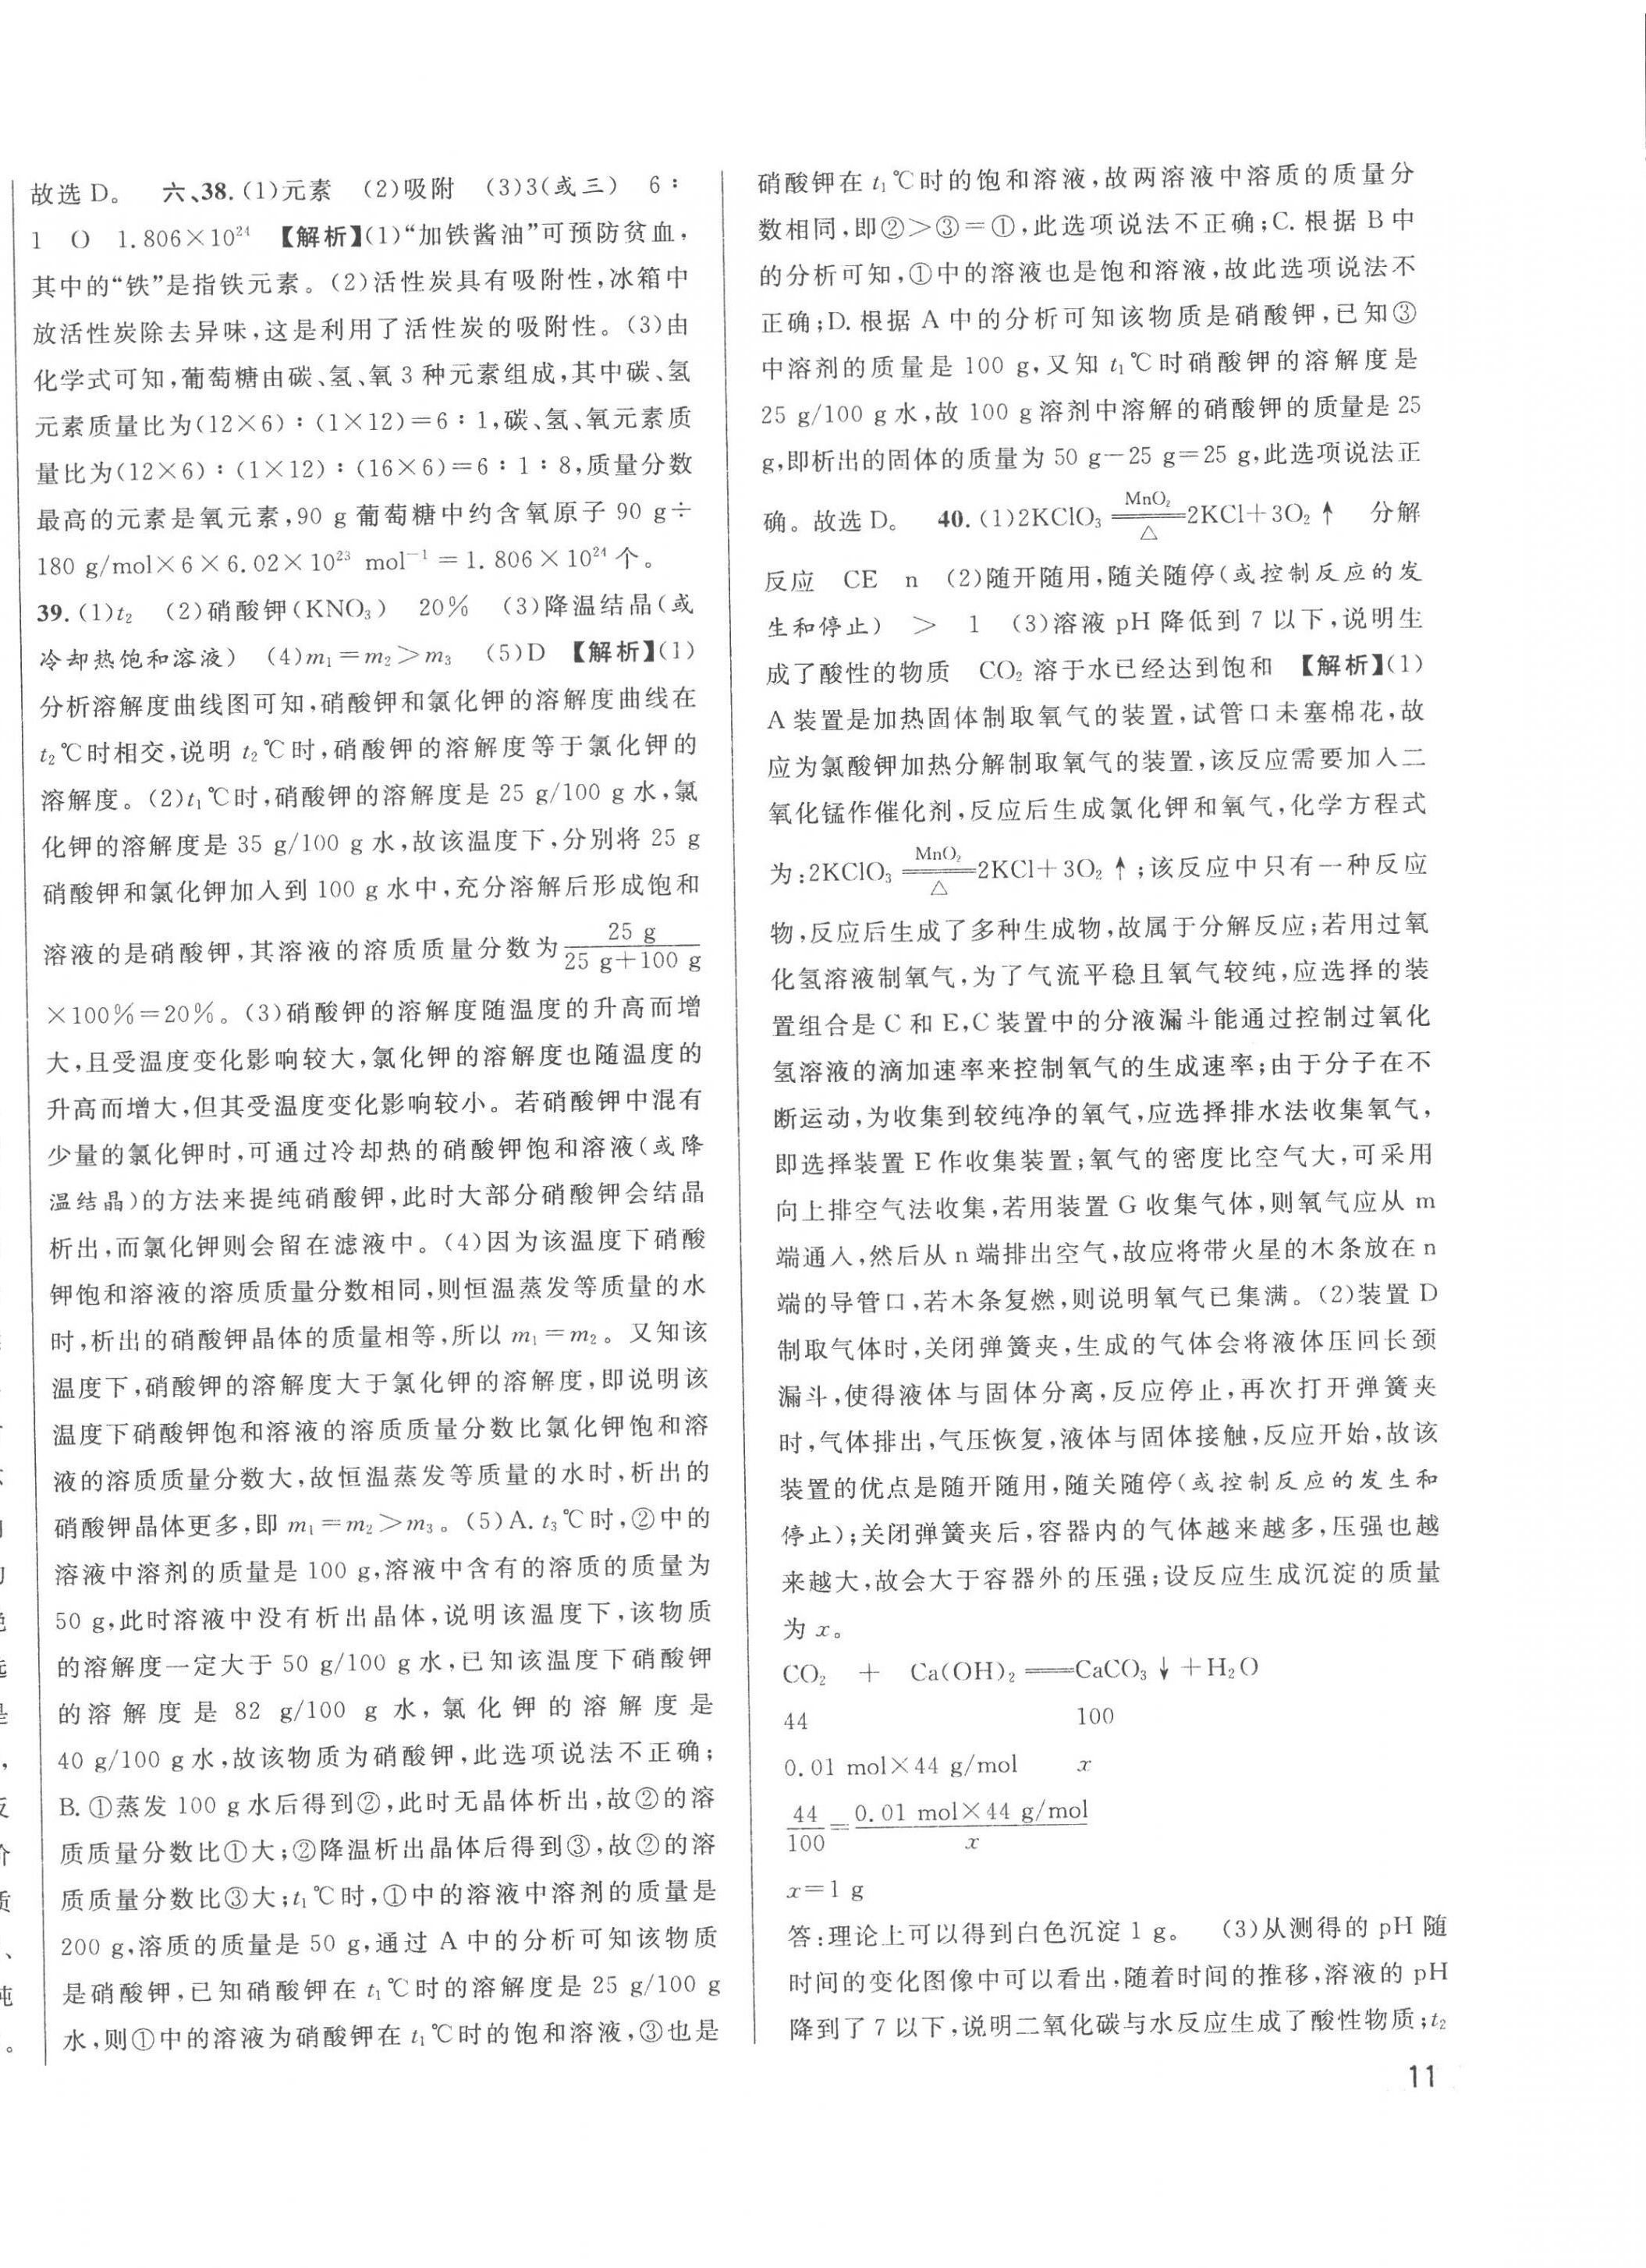 故选 D。 六、38. (1)元素 (2)吸附 (3)3(或三) 6∶
1 O 1.806×10²⁴ 【解析】(1)“加铁酱油”可预防贫血,
其中的“铁”是指铁元素。(2)活性炭具有吸附性,冰箱中
放活性炭除去异味,这是利用了活性炭的吸附性。(3)由
化学式可知,葡萄糖由碳、氢、氧 3 种元素组成,其中碳、氢
元素质量比为(12×6)∶(1×12)=6∶1,碳、氢、氧元素质
量比为(12×6)∶(1×12)∶(16×6)=6∶1∶8,质量分数
最高的元素是氧元素,90 g 葡萄糖中约含氧原子 90 g÷
180 g/mol×6×6.02×10²³ mol⁻¹=1.806×10²⁴个。
39. (1)t₂ (2)硝酸钾(KNO₃) 20% (3)降温结晶(或
冷却热饱和溶液) (4)m₁=m₂>m₃ (5)D 【解析】(1)
分析溶解度曲线图可知,硝酸钾和氯化钾的溶解度曲线在
t₂℃时相交,说明 t₂℃时,硝酸钾的溶解度等于氯化钾的
溶解度。(2)t₁℃时,硝酸钾的溶解度是 25 g/100 g 水,氯
化钾的溶解度是 35 g/100 g 水,故该温度下,分别将 25 g
硝酸钾和氯化钾加入到 100 g 水中,充分溶解后形成饱和
溶液的是硝酸钾,其溶液的溶质质量分数为 25 g/(25 g+100 g)
×100%=20%。(3)硝酸钾的溶解度随温度的升高而增
大,且受温度变化影响较大,氯化钾的溶解度也随温度的
升高而增大,但其受温度变化影响较小。若硝酸钾中混有
少量的氯化钾时,可通过冷却热的硝酸钾饱和溶液(或降
温结晶)的方法来提纯硝酸钾,此时大部分硝酸钾会结晶
析出,而氯化钾则会留在滤液中。(4)因为该温度下硝酸
钾饱和溶液的溶质质量分数相同,则恒温蒸发等质量的水
时,析出的硝酸钾晶体的质量相等,所以 m₁=m₂。又知该
温度下,硝酸钾的溶解度大于氯化钾的溶解度,即说明该
温度下硝酸钾饱和溶液的溶质质量分数比氯化钾饱和溶
液的溶质质量分数大,故恒温蒸发等质量的水时,析出的
硝酸钾晶体更多,即 m₁=m₂>m₃。(5)A. t₃℃时,②中的
溶液中溶剂的质量是 100 g,溶液中含有的溶质的质量为
50 g,此时溶液中没有析出晶体,说明该温度下,该物质
的溶解度一定大于 50 g/100 g 水,已知该温度下硝酸钾
的溶解度是 82 g/100 g 水,氯化钾的溶解度是
40 g/100 g 水,故该物质为硝酸钾,此选项说法不正确;
B. ①蒸发 100 g 水后得到②,此时无晶体析出,故②的溶
质质量分数比①大;②降温析出晶体后得到③,故②的溶
质质量分数比③大;t₁℃时,①中的溶液中溶剂的质量是
200 g,溶质的质量是 50 g,通过 A 中的分析可知该物质
是硝酸钾,已知硝酸钾在 t₁℃时的溶解度是 25 g/100 g
水,则①中的溶液为硝酸钾在 t₁℃时的饱和溶液,③也是
硝酸钾在 t₁℃时的饱和溶液,故两溶液中溶质的质量分
数相同,即②>③=①,此选项说法不正确;C. 根据 B 中
的分析可知,①中的溶液也是饱和溶液,故此选项说法不
正确;D. 根据 A 中的分析可知该物质是硝酸钾,已知③
中溶剂的质量是 100 g,又知 t₁℃时硝酸钾的溶解度是
25 g/100 g 水,故 100 g 溶剂中溶解的硝酸钾的质量是 25
g,即析出的固体的质量为 50 g-25 g=25 g,此选项说法正
确。故选 D。 40. (1)2KClO₃ =MnO₂/△= 2KCl+3O₂↑ 分解
反应 CE n (2)随开随用,随关随停(或控制反应的发
生和停止) > 1 (3)溶液 pH 降低到 7 以下,说明生
成了酸性的物质 CO₂ 溶于水已经达到饱和 【解析】(1)
A 装置是加热固体制取氧气的装置,试管口未塞棉花,故
应为氯酸钾加热分解制取氧气的装置,该反应需要加入二
氧化锰作催化剂,反应后生成氯化钾和氧气,化学方程式
为:2KClO₃ =MnO₂/△= 2KCl+3O₂↑;该反应中只有一种反应
物,反应后生成了多种生成物,故属于分解反应;若用过氧
化氢溶液制氧气,为了气流平稳且氧气较纯,应选择的装
置组合是 C 和 E,C 装置中的分液漏斗能通过控制过氧化
氢溶液的滴加速率来控制氧气的生成速率;由于分子在不
断运动,为收集到较纯净的氧气,应选择排水法收集氧气,
即选择装置 E 作收集装置;氧气的密度比空气大,可采用
向上排空气法收集,若用装置 G 收集气体,则氧气应从 m
端通入,然后从 n 端排出空气,故应将带火星的木条放在 n
端的导管口,若木条复燃,则说明氧气已集满。(2)装置 D
制取气体时,关闭弹簧夹,生成的气体会将液体压回长颈
漏斗,使得液体与固体分离,反应停止,再次打开弹簧夹
时,气体排出,气压恢复,液体与固体接触,反应开始,故该
装置的优点是随开随用,随关随停(或控制反应的发生和
停止);关闭弹簧夹后,容器内的气体越来越多,压强也越
来越大,故会大于容器外的压强;设反应生成沉淀的质量
为 x。
CO₂ + Ca(OH)₂ ══ CaCO₃↓+H₂O
44 100
0.01 mol×44 g/mol x
44/100 = 0.01 mol×44 g/mol / x
x=1 g
答:理论上可以得到白色沉淀 1 g。 (3)从测得的 pH 随
时间的变化图像中可以看出,随着时间的推移,溶液的 pH
降到了 7 以下,说明二氧化碳与水反应生成了酸性物质;t₂
11